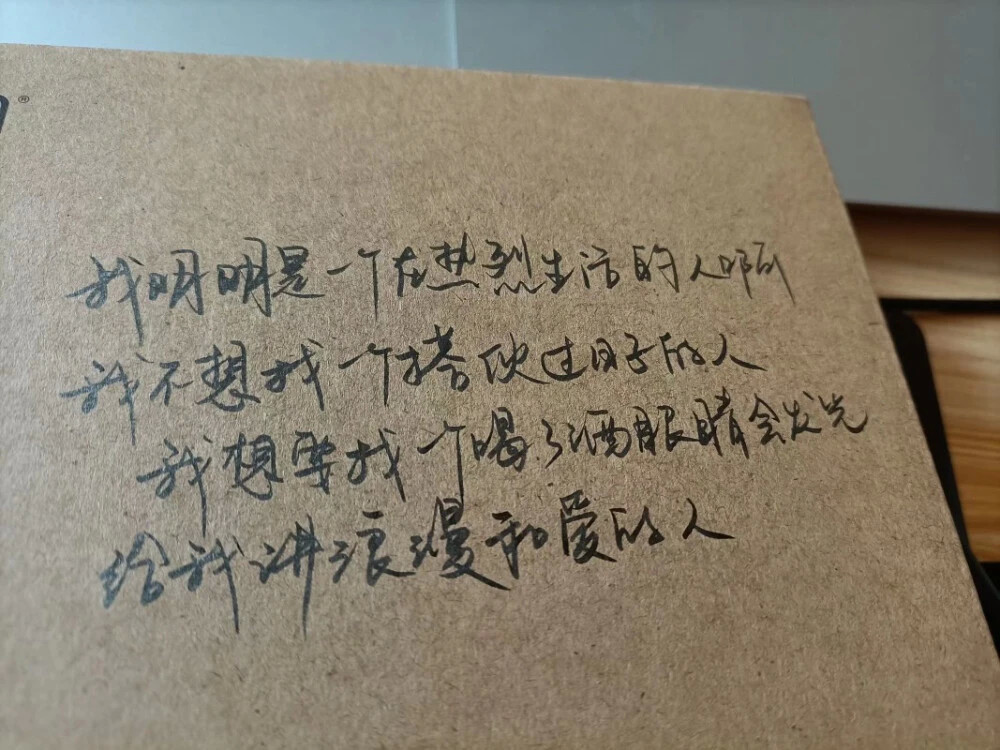 我明明是一个在热烈生活的人啊
我不想找一个搭伙过日子的人
我想要找一个喝了酒眼睛会发光
给我讲浪漫和爱的人
®